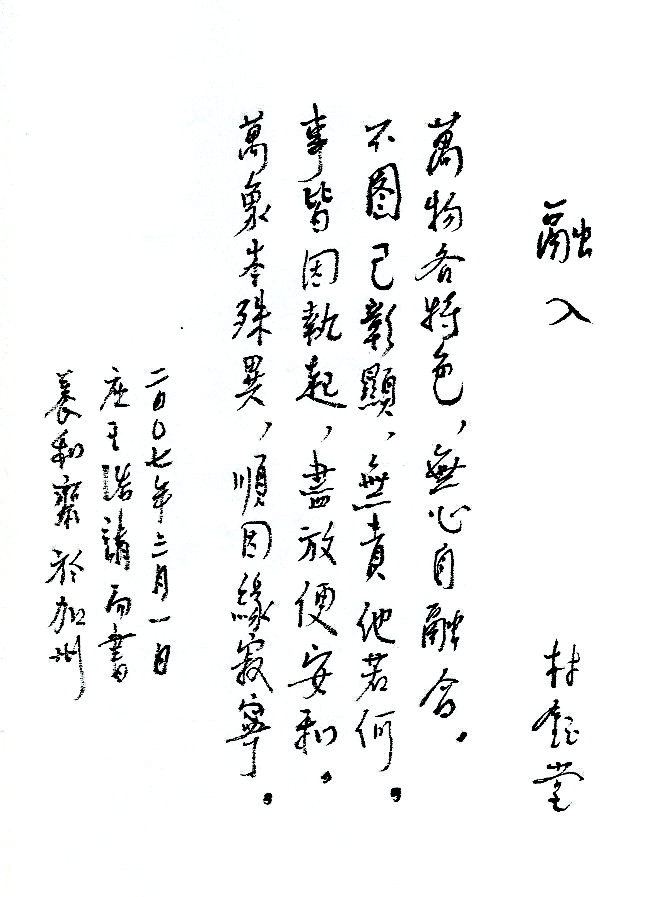 融入
林鈺堂
萬物各特色，無心自融合。
不圖己彰顯，無責他若何。
事皆因執起，盡放便安和。
萬象岑殊異，順因緣寂寧。
二00七年三月一日
應王浩請而書
養和齋於加州